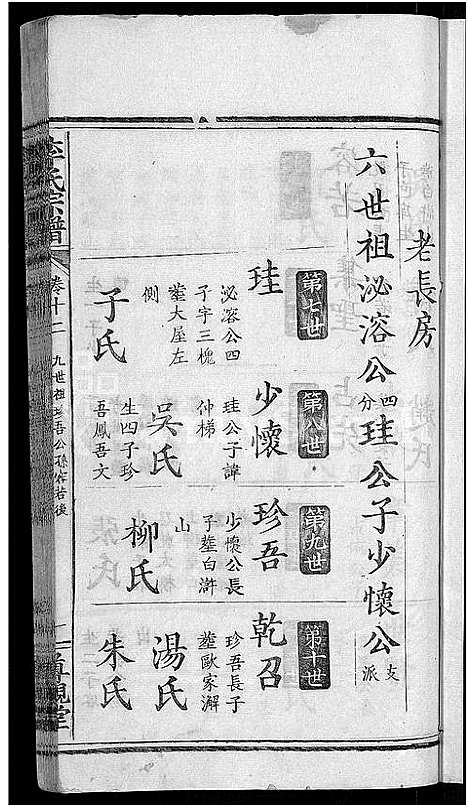 老長房
六世祖泌溶公四分珪公子少懷公支派
第七世
珪
泌溶公四
子字三槐
塟大屋左
側
子氏
第八世
少懷
珪公子諱
仲梯
吳氏
生四子珍
吾鳳吾文
第九世
珍吾
少懷公長
子塟白滸
山
柳氏
第十世
乾召
珍吾長子
塟歐家澥
湯氏
朱氏
李氏宗譜
卷十二
九世祖珍吾公孫容若後